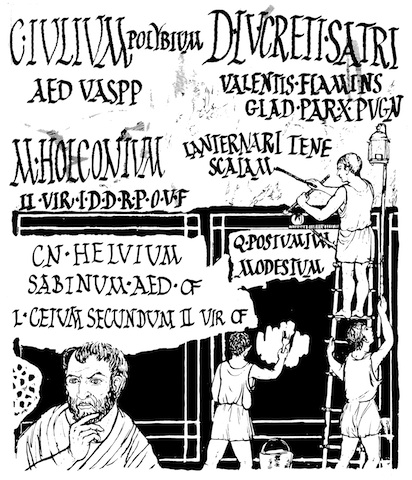 C·IVLIVM POLYBIVM
AED VASPP
D·LVCRETI·SATRI
VALENTIS·FLAMINS
GLAD·PAR·X·PVGN
M·HOLCONIVM
II·VIR·I·D·D·R·P·O·V·F
LANTERNARI TENE
SCALAM
CN·HELVIVM
SABINVM·AED·OF
L·CEIVM SECVNDVM II VIR OF
Q·POSTVMIVM
MODESTVM